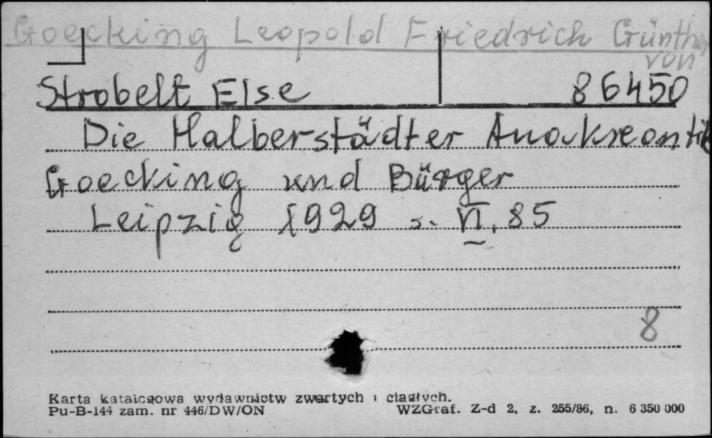 Goecking Leopold Friedrich Günther
von
Strobelt Else 86450
Die Halberstädter Anakreontik
Goecking und Bürger
Leipzig 1929 s. VI, 85
8
Karta katalogowa wydawnictw zwartych i ciągłych.
Pu-B-144 zam. nr 446/DW/ON WZGraf. Z-d 2, z. 255/86, n. 6 350 000